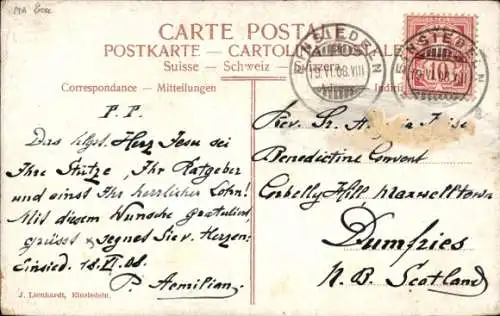 CARTE POSTALE
POSTKARTE — CARTOLINA POSTALE
Suisse — Schweiz — Svizzera
Correspondance — Mitteilungen
EINSIEDELN
19.VI.08.VIII
EINSIEDELN
19.VI.08.VIII
10
P. P.
Das hlgst. Herz Jesu sei
Ihre Stütze, Ihr Ratgeber
und einst Ihr herrlicher Lohn!
Mit diesem Wunsche gratuliert
grüsst & segnet Sie v. Herzen
Einsied. 18. VI. 08.
P. Aemilian.
Rev. Sr.
Benedictine Convent
Corbelly Hill Maxwelltown
Dumfries
N. B. Scotland
J. Lienhardt, Einsiedeln.